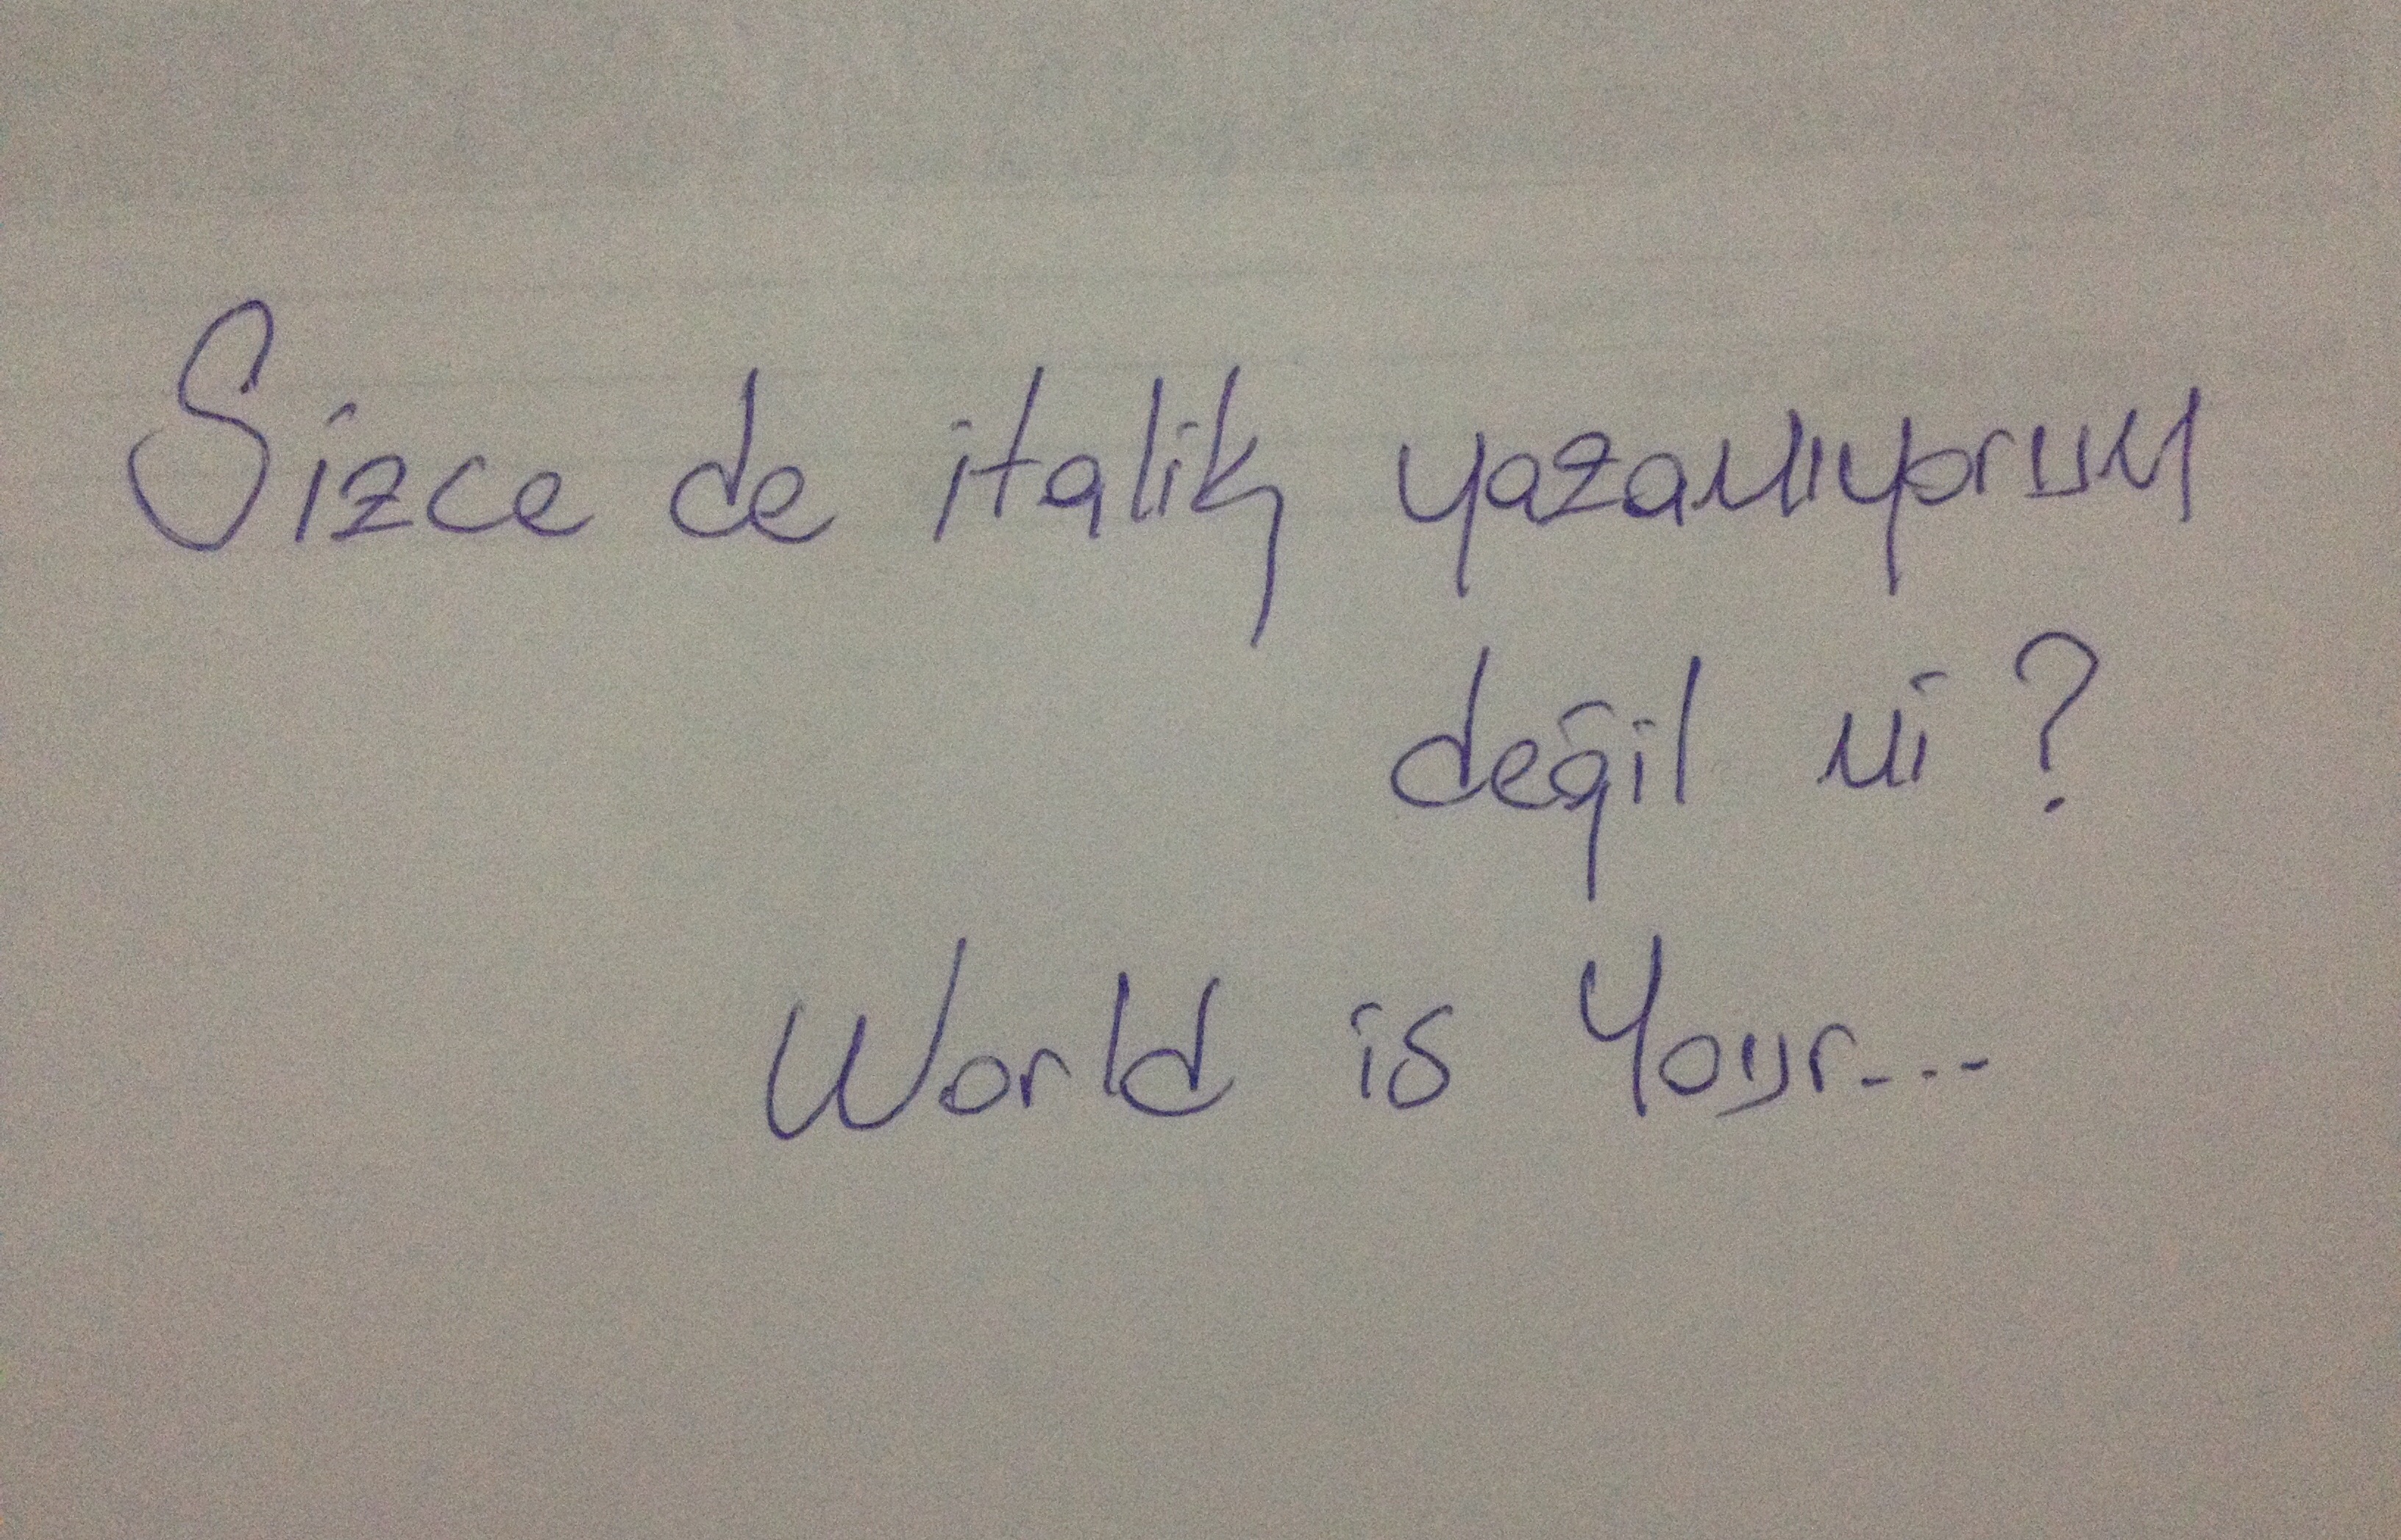 Sizce de italik yazamıyorum
değil mi?
World is Your...